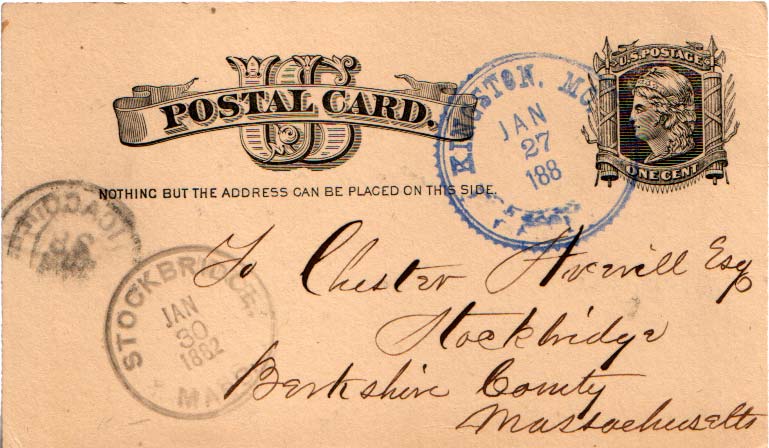 US
POSTAL CARD.
U.S. POSTAGE
ONE CENT
NOTHING BUT THE ADDRESS CAN BE PLACED ON THIS SIDE.
KINGSTON, MO
JAN
27
188
STOCKBRIDGE,
JAN
30
1882
MASS
To Chester Averill Esq
Stockbridge
Berkshire County
Massachusetts